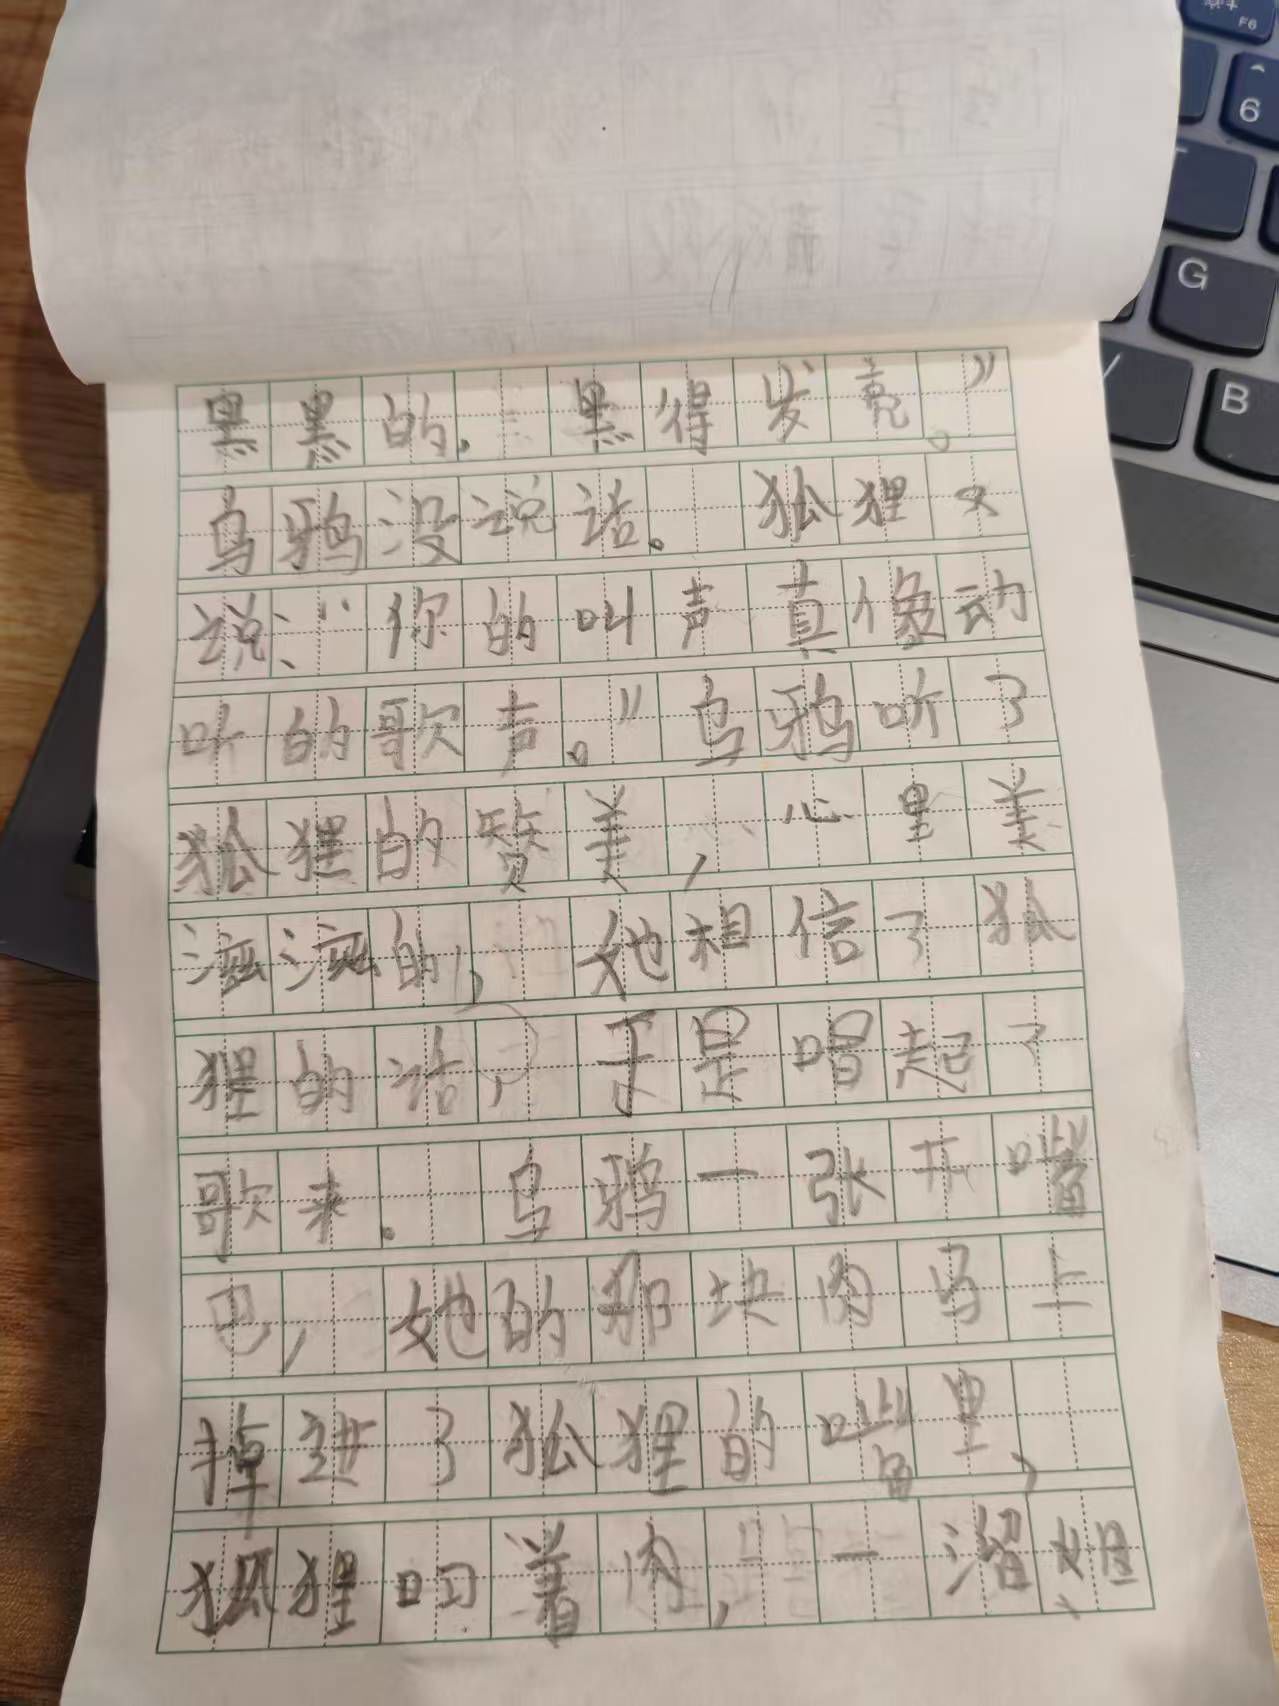 黑黑的。黑得发亮。”
乌鸦没说话。狐狸又
说：“你的叫声真像动
听的歌声。”乌鸦听了
狐狸的赞美，心里美
滋滋的，她相信了狐
狸的话，于是唱起了
歌来。乌鸦一张开嘴
巴，她的那块肉马上
掉进了狐狸的嘴里，
狐狸叼着肉，一溜烟
F6
6
G
B